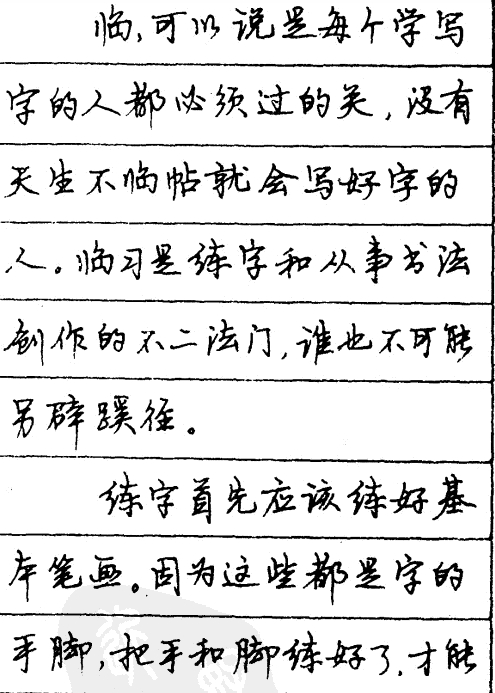 临,可以说是每个学写
字的人都必须过的关,没有
天生不临帖就会写好字的
人。临习是练字和从事书法
创作的不二法门,谁也不可能
另辟蹊径。
练字首先应该练好基
本笔画。因为这些都是字的
手脚,把手和脚练好了,才能